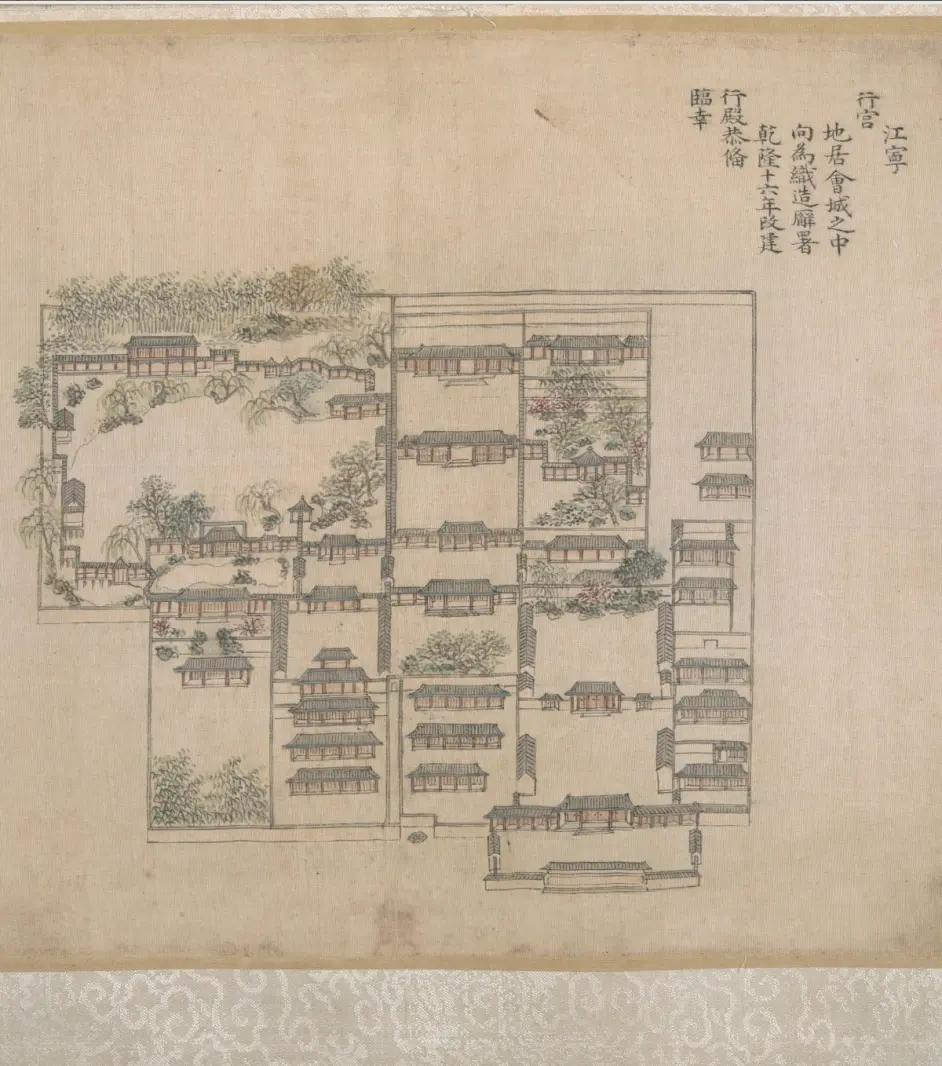 江寧
行宮
地居會城之中
向為織造廨署
乾隆十六年改建
行殿恭備
臨幸